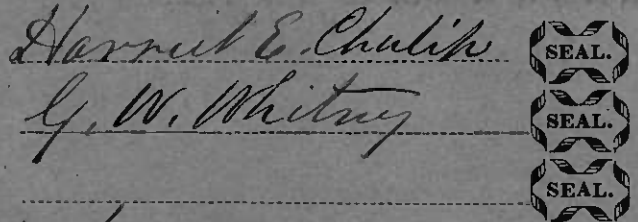 Harriet E. Chalip SEAL.
G. W. Whitney SEAL.
SEAL.